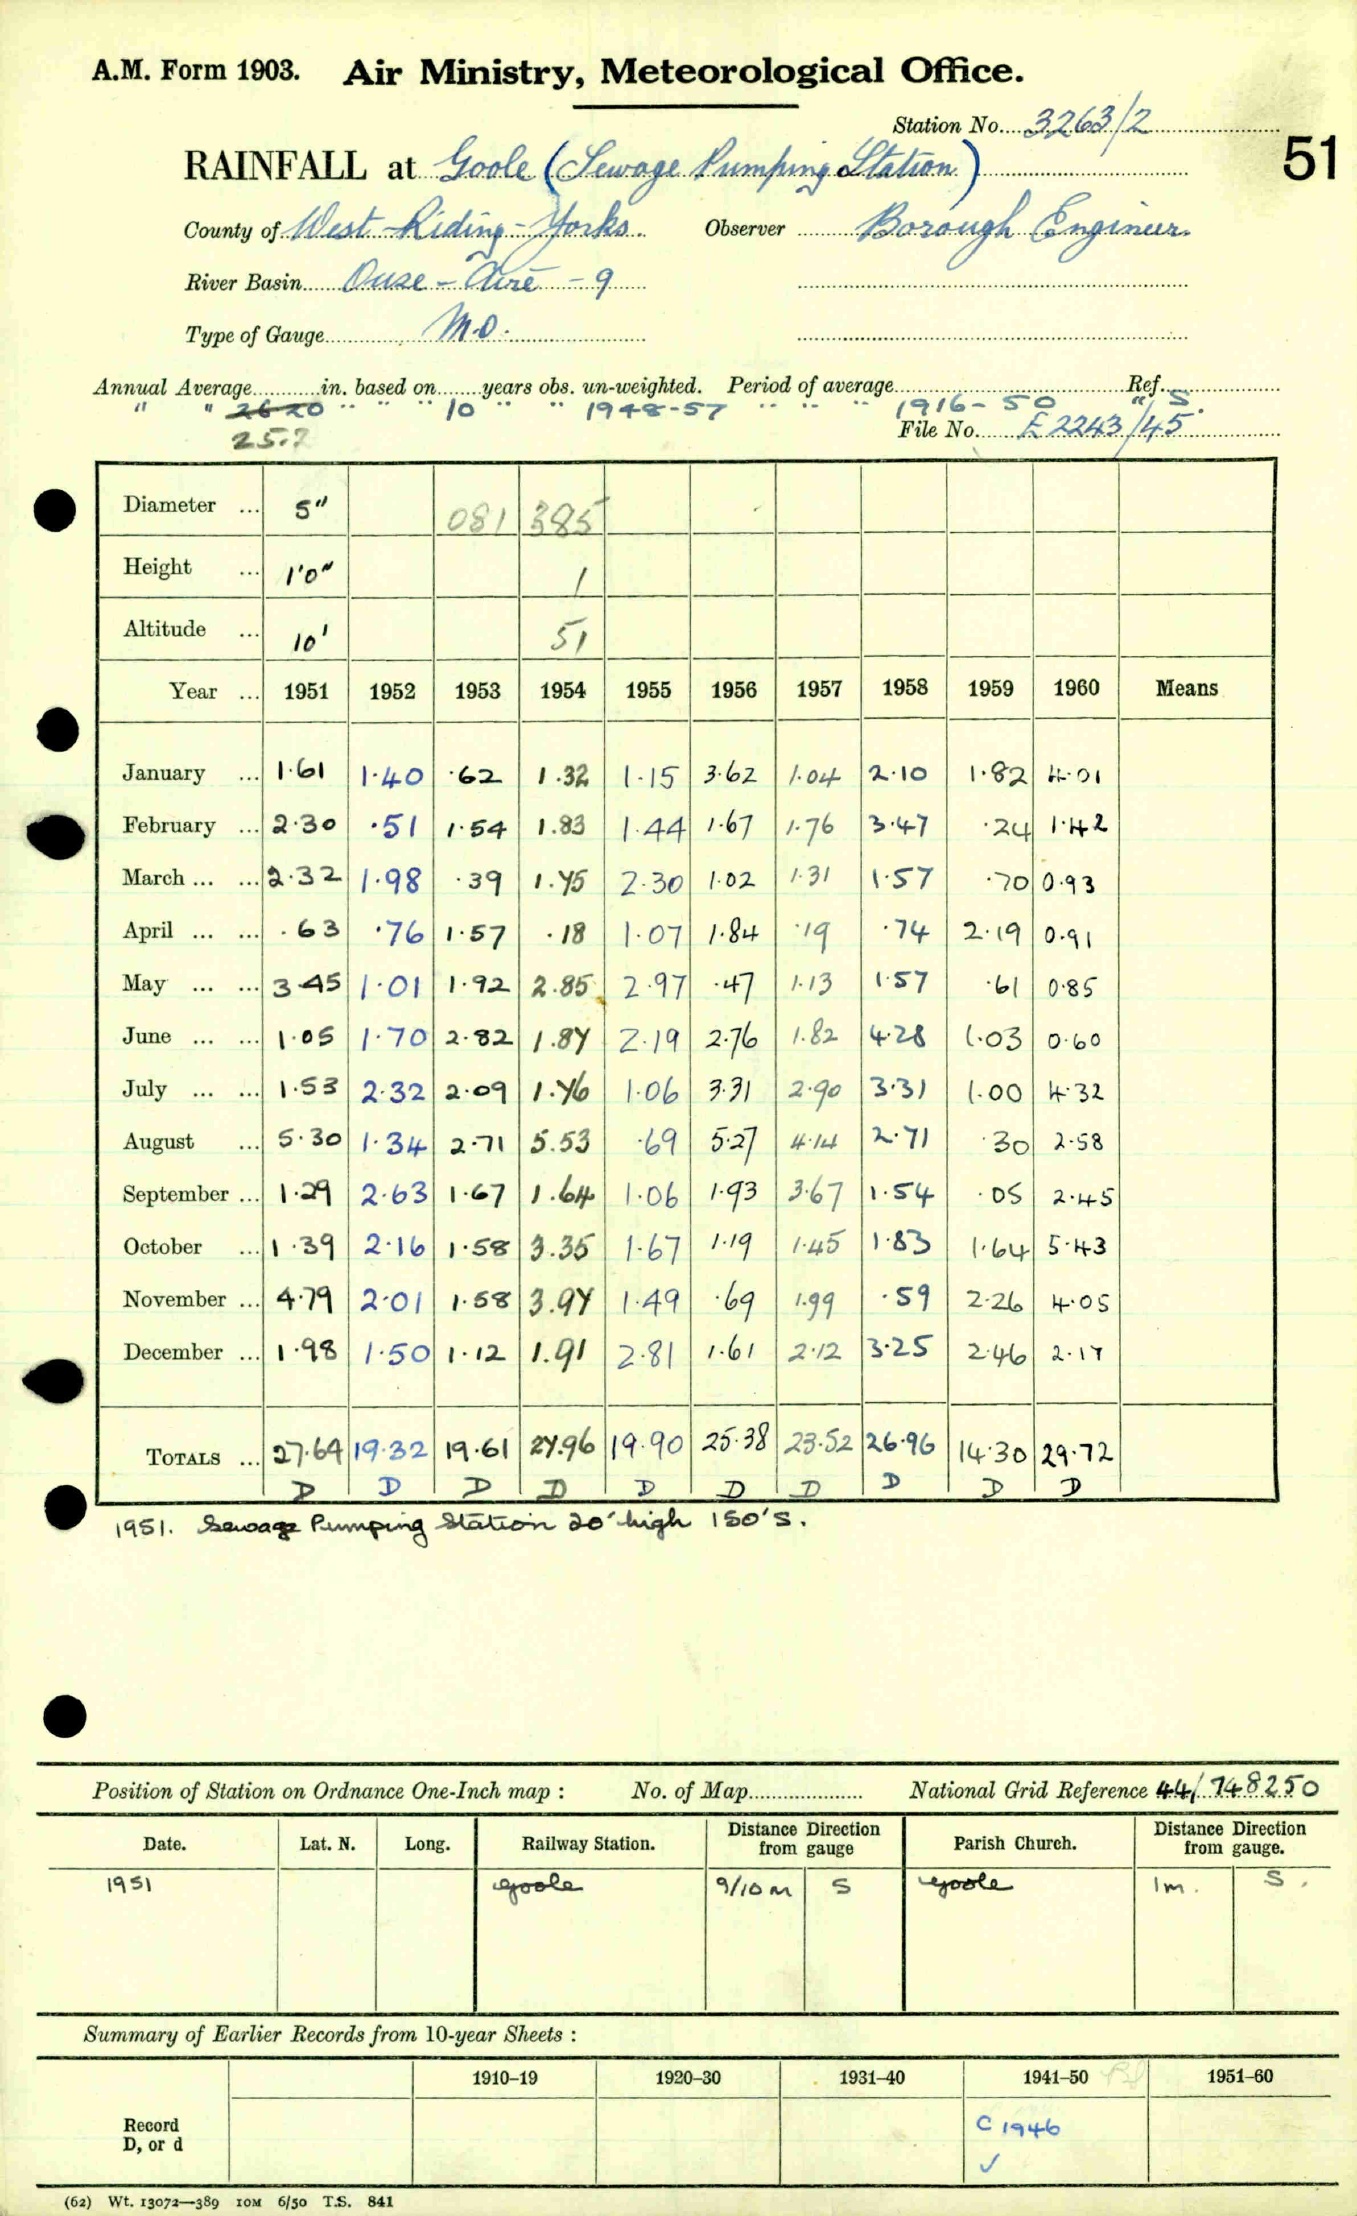 A.M. Form 1903. Air Ministry, Meteorological Office.
Station No. 3263/2
51
RAINFALL at Goole (Sewage Pumping Station)
County of West-Riding-Yorks. Observer Borough Engineer.
River Basin Ouse - Aire - 9
Type of Gauge M.O.
Annual Average in. based on years obs. un-weighted. Period of average Ref.
" " 26.20 " " " 10 " " 1948-57 " " " 1916-50 " S.
25.7
File No. E 2243/45
Diameter ... 5" 081 385
Height ... 1'0" 1
Altitude ... 10' 51
Year ... 1951 1952 1953 1954 1955 1956 1957 1958 1959 1960 Means
January ... 1.61 1.40 .62 1.32 1.15 3.62 1.04 2.10 1.82 4.01
February ... 2.30 .51 1.54 1.83 1.44 1.67 1.76 3.47 .24 1.42
March ... ... 2.32 1.98 .39 1.75 2.30 1.02 1.31 1.57 .70 0.93
April ... ... .63 .76 1.57 .18 1.07 1.84 .19 .74 2.19 0.91
May ... ... 3.45 1.01 1.92 2.85 2.97 .47 1.13 1.57 .61 0.85
June ... ... 1.05 1.70 2.82 1.87 2.19 2.76 1.82 4.28 1.03 0.60
July ... ... 1.53 2.32 2.09 1.76 1.06 3.31 2.90 3.31 1.00 4.32
August ... 5.30 1.34 2.71 5.53 .69 5.27 4.14 2.71 .30 2.58
September ... 1.29 2.63 1.67 1.64 1.06 1.93 3.67 1.54 .05 2.45
October ... 1.39 2.16 1.58 3.35 1.67 1.19 1.45 1.83 1.64 5.43
November ... 4.79 2.01 1.58 3.97 1.49 .69 1.99 .59 2.26 4.05
December ... 1.98 1.50 1.12 1.91 2.81 1.61 2.12 3.25 2.46 2.17
TOTALS ... 27.64 19.32 19.61 27.96 19.90 25.38 23.52 26.96 14.30 29.72
D D D D D D D D D D
1951. Sewage Pumping Station 20' high 150'S.
Position of Station on Ordnance One-Inch map : No. of Map National Grid Reference 44/748250
Date. Lat. N. Long. Railway Station. Distance Direction from gauge Parish Church. Distance Direction from gauge.
1951 Goole 9/10 m S Goole 1m. S.
Summary of Earlier Records from 10-year Sheets :
1910–19 1920–30 1931–40 1941–50 1951–60
Record
D, or d
C 1946
✓
(62) Wt. 13072—389 10M 6/50 T.S. 841